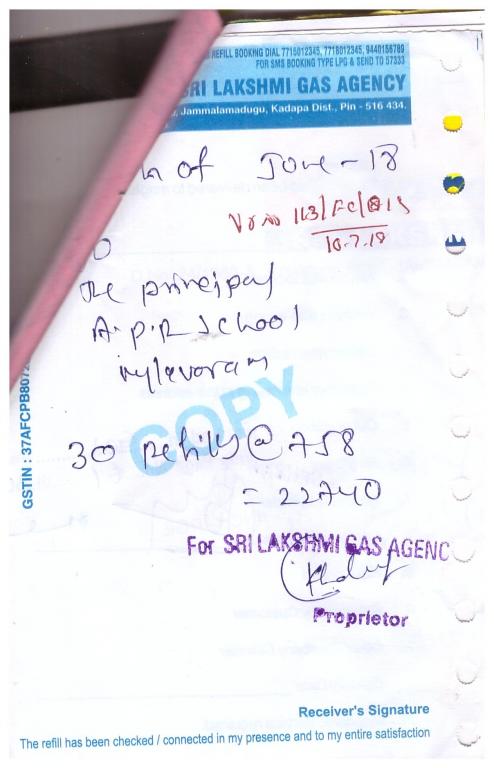 REFILL BOOKING DIAL 7715012345, 7718012345, 9440156789
FOR SMS BOOKING TYPE LPG & SEND TO 57333
SRI LAKSHMI GAS AGENCY
Jammalamadugu, Kadapa Dist., Pin - 516 434.
of June-18
10.7.18
The principal
A.P.R School
mylavaram
COPY
30 Refills @ 758
= 22740
For SRI LAKSHMI GAS AGENC
Proprietor
GSTIN : 37AFCPB807
Receiver's Signature
The refill has been checked / connected in my presence and to my entire satisfaction